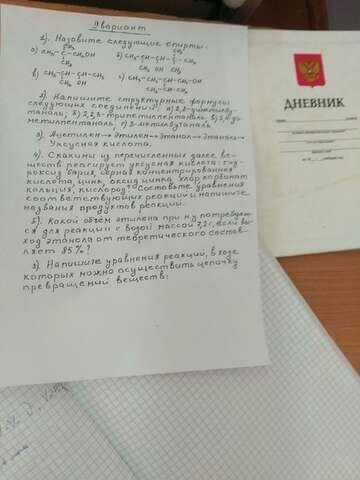 II вариант
1). Назовите следующие спирты:
CH₃ CH₃
а) CH₃-C-CH₂OH б) CH₃-CH-CH-C-CH₃
CH₃ CH₃ OH CH₃
в) CH₃-CH-CH-CH₃ г) CH₃-CH₂-CH-OH
CH₃ OH CH₃-CH-CH₃
2). Напишите структурные формулы
следующих соединений: а)
таналь; б) 2,2,3-триметилпентаналь
метилпентаналь г) 3-метилбутаналь
3). Ацетилен → Этилен → Этанол → Этаналь →
Уксусная кислота.
4). С какими из перечисленных далее ве-
ществ реагирует уксусная кислота: гид-
роксид бария, серная концентрированная
кислота, цинк, оксид цинка, хлор, карбонат
кальция, кислород? Составьте уравнения
соответствующих реакций и напишите
названия продуктов реакции.
5). Какой объём этилена при н.у. потребует-
ся для реакции с водой массой 7,2 г, если вы-
ход этанола от теоретического состав-
ляет 85%?
3). Напишите уравнения реакций, в ходе
которых можно осуществить цепочку
превращений веществ:
ДНЕВНИК